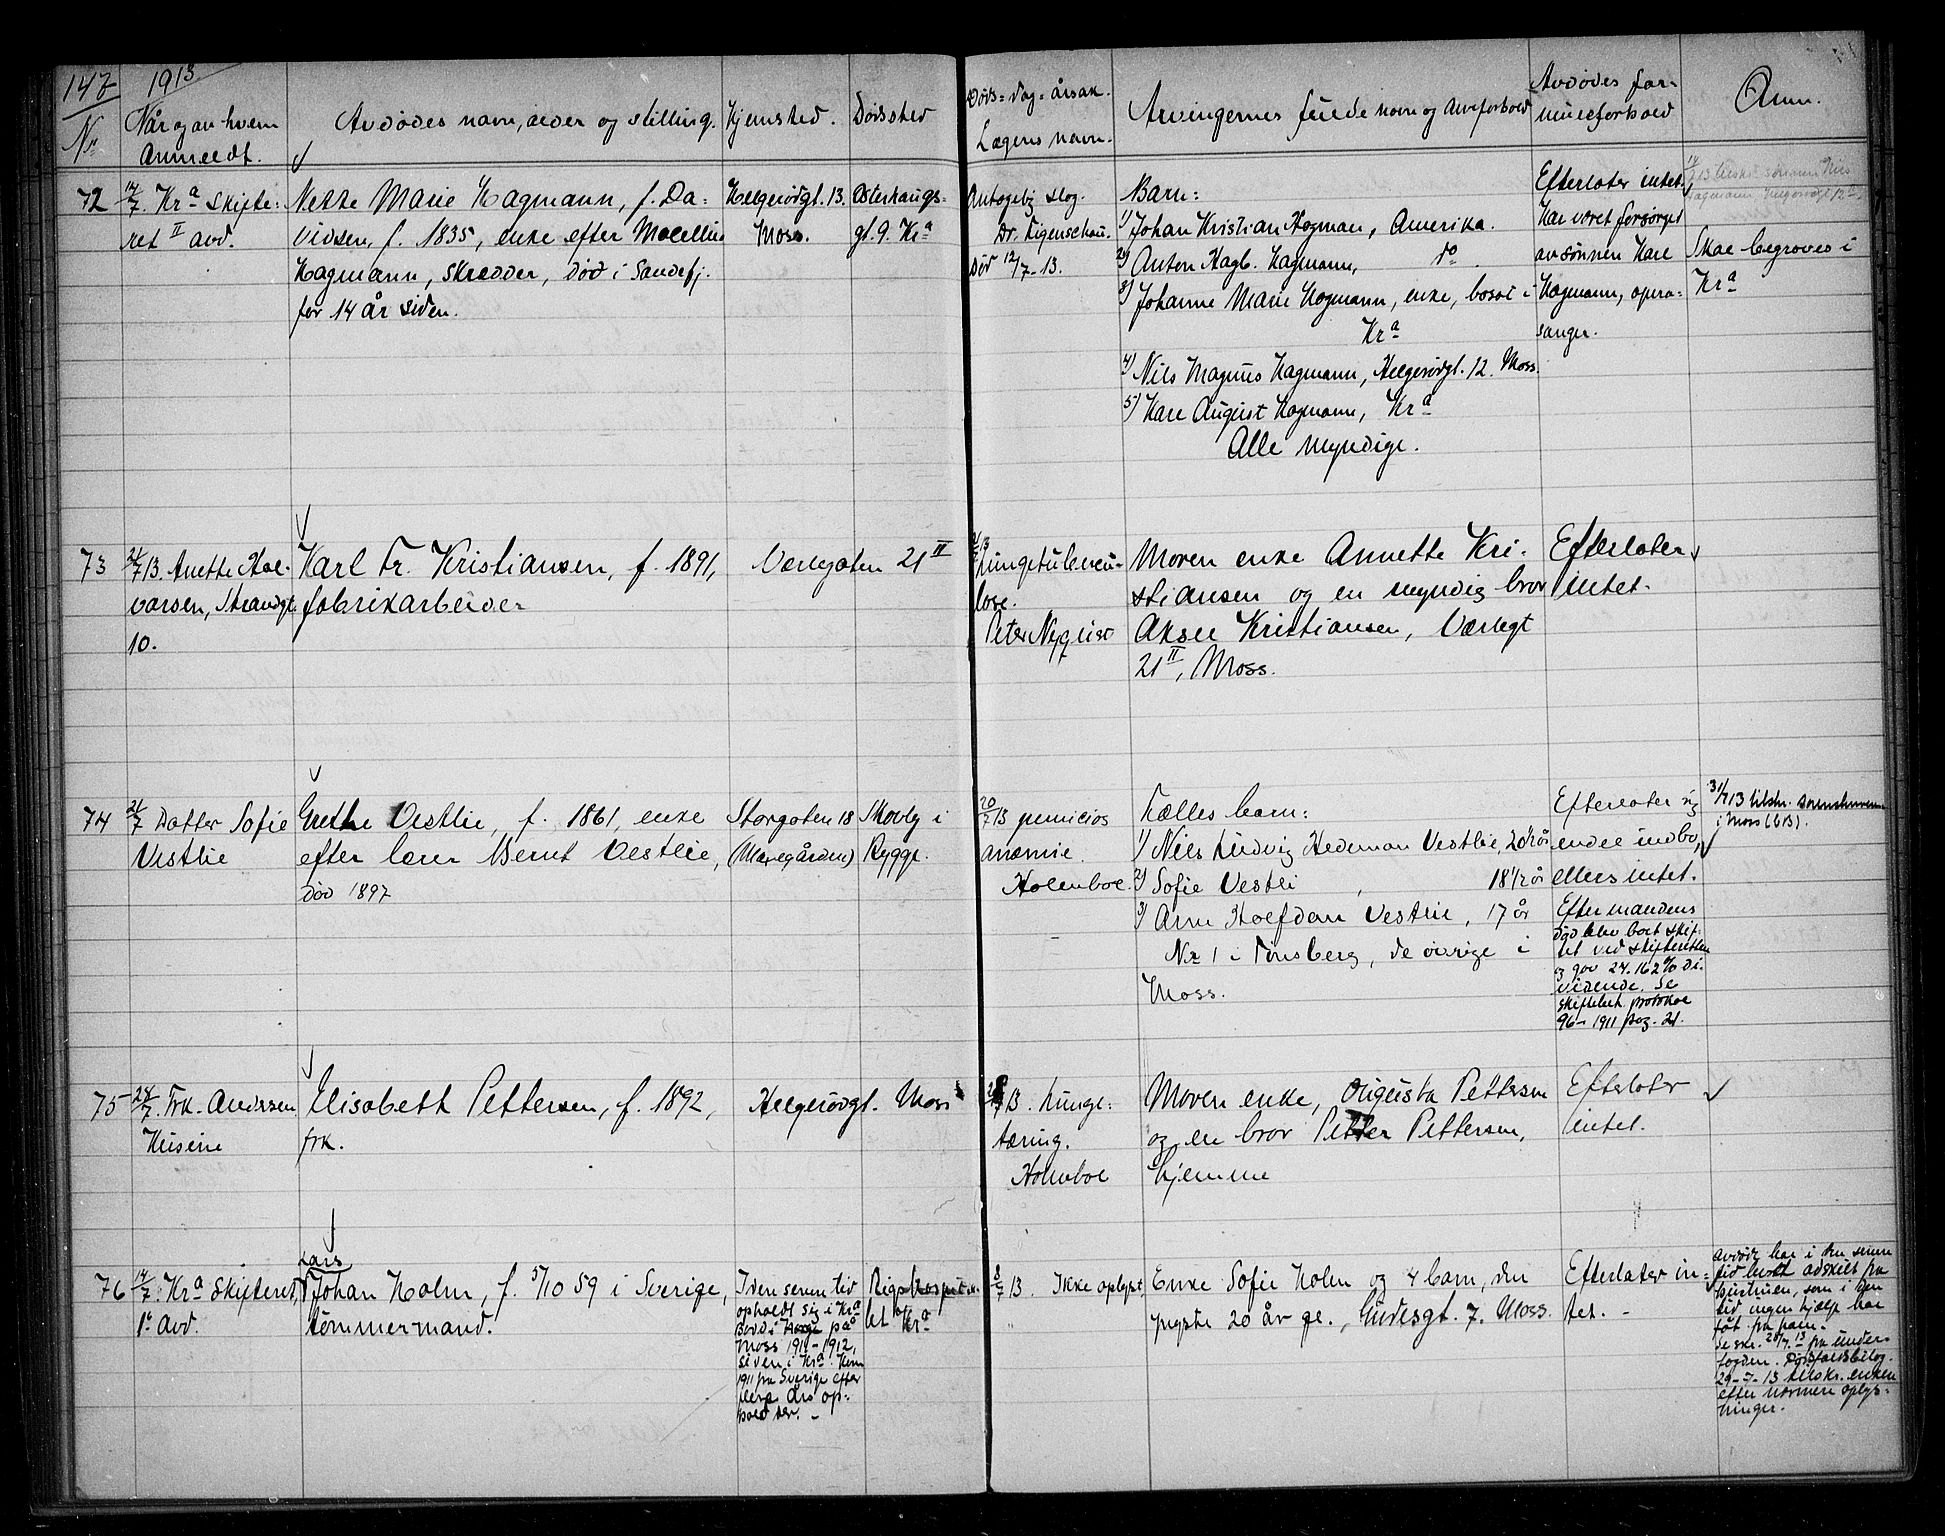 147
1913
Nr
Når og av hvem
Anmeldt.
Avdødes navn, alder og stilling.
Hjemsted.
Dødssted
Døds-dag-årsak.
Lægens navn.
Arvingernes fulde navn og Arveforhold
Avdødes for-
mueforhold
Anm.
72
14/7. Kr.a Skifte-
ret II avd.
Nette Marie Hagmann, f. Da-
vidsen, f. 1835, enke efter Marcellius
Hagmann, skredder, død i Sandefj.
for 14 år siden.
Helgerødgt. 13.
Moss.
Østerhaugs-
gt. 9. Kr.a
slag.
Død 12/7-13.
Barn:
1) Johan Kristian Hagman, Amerika.
2) Anton Hagb. Hagmann, do.
3) Johanne Marie Hagmann, enke, bosat i
Kr.a
4) Nils Magnus Hagmann, Helgerødgt. 12. Moss
5) Karl August Hagmann, Kr.a
Alle myndige.
Efterlater intet.
Har været forsørget
av sønnen Karl
Hagmann, opera-
sanger.
Skal begraves i
Kr.a
73
21/7 13. Anette Hal-
varsen, Strandgt.
10.
Karl Fr. Kristiansen, f. 1891,
fabrikarbeider
Værlegaten 21 II
13
Lungetuberku-
lose.
Peter Nyquist
Moren enke Annette Kri-
stiansen og en myndig bror
Aksel Kristiansen, Værlegt
21 II, Moss.
Efterlater
intet.
74
21/7 Datter Sofie
Vestlie
Grethe Vestlie, f. 1861, enke
efter lærer Bernt Vestlie,
død 1897
Storgaten 18
Skovly i
Rygge.
20/7 13 perniciøs
anæmie.
Holmboe.
Fælles barn:
1) Nils Ludvig Hedeman Vestlie, 20½ år
2) Sofie Vestli, 18½ år
3) Arne Halfdan Vestlie, 17 år
Nr 1 i Tønsberg, de øvrige i
Moss.
Efterlater sig
endel indbo,
ellers intet.
Efter mandens
død blev boet skif-
tet ved skifteretten
og gav 24.162 % di-
vidende. Se
skifteret. protokol
96-1911 pag. 21.
31/7 13 tilskr.
i Moss (613).
75
24/7. Frk. Andersen
Elisabeth Pettersen, f. 1892,
frk.
Helgerødgt. Moss
13. Lunge-
tæring.
Holmboe
Moren enke, Augusta Pettersen
og en bror Petter Pettersen,
hjemme
Efterlater
intet.
76
14/7. Kr.a Skifteret,
1. Avd.
Lars
Johan Holm, f. 5/10 59 i Sverige,
tømmermand.
I den senere tid
opholdt sig i Kr.a
Bodd i på
Moss 1911-1912,
siden i Kr.a. Kom
1911 fra Sverige efter
flere års op-
hold der. -
Rigshospita-
let Kr.a
8/7 13. Ikke oplyst
Enke Sofie Holm og 4 barn, den
yngste 20 år gl., Gudesgt. 7. Moss.
Efterlater in-
tet. -
Avdøde har i den senere
tid levet adskilt fra
hustruen, som i den
tid ingen hjælp har
fåt fra ham.
Se skr. 26/7. 13 fra under-
fogden. Dødsfaldsbilag.
29-7-13 tilskr. enken
efter nærmere oplys-
ninger.